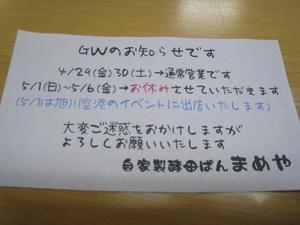 GWのお知らせです
4/29(金)30(土)→通常営業です
5/1(日)〜5/6(金)→お休みさせていただきます
(5/1は旭川空港のイベントに出店いたします)
大変ご迷惑をおかけしますが
よろしくお願いいたします
自家製酵母ぱん まめや